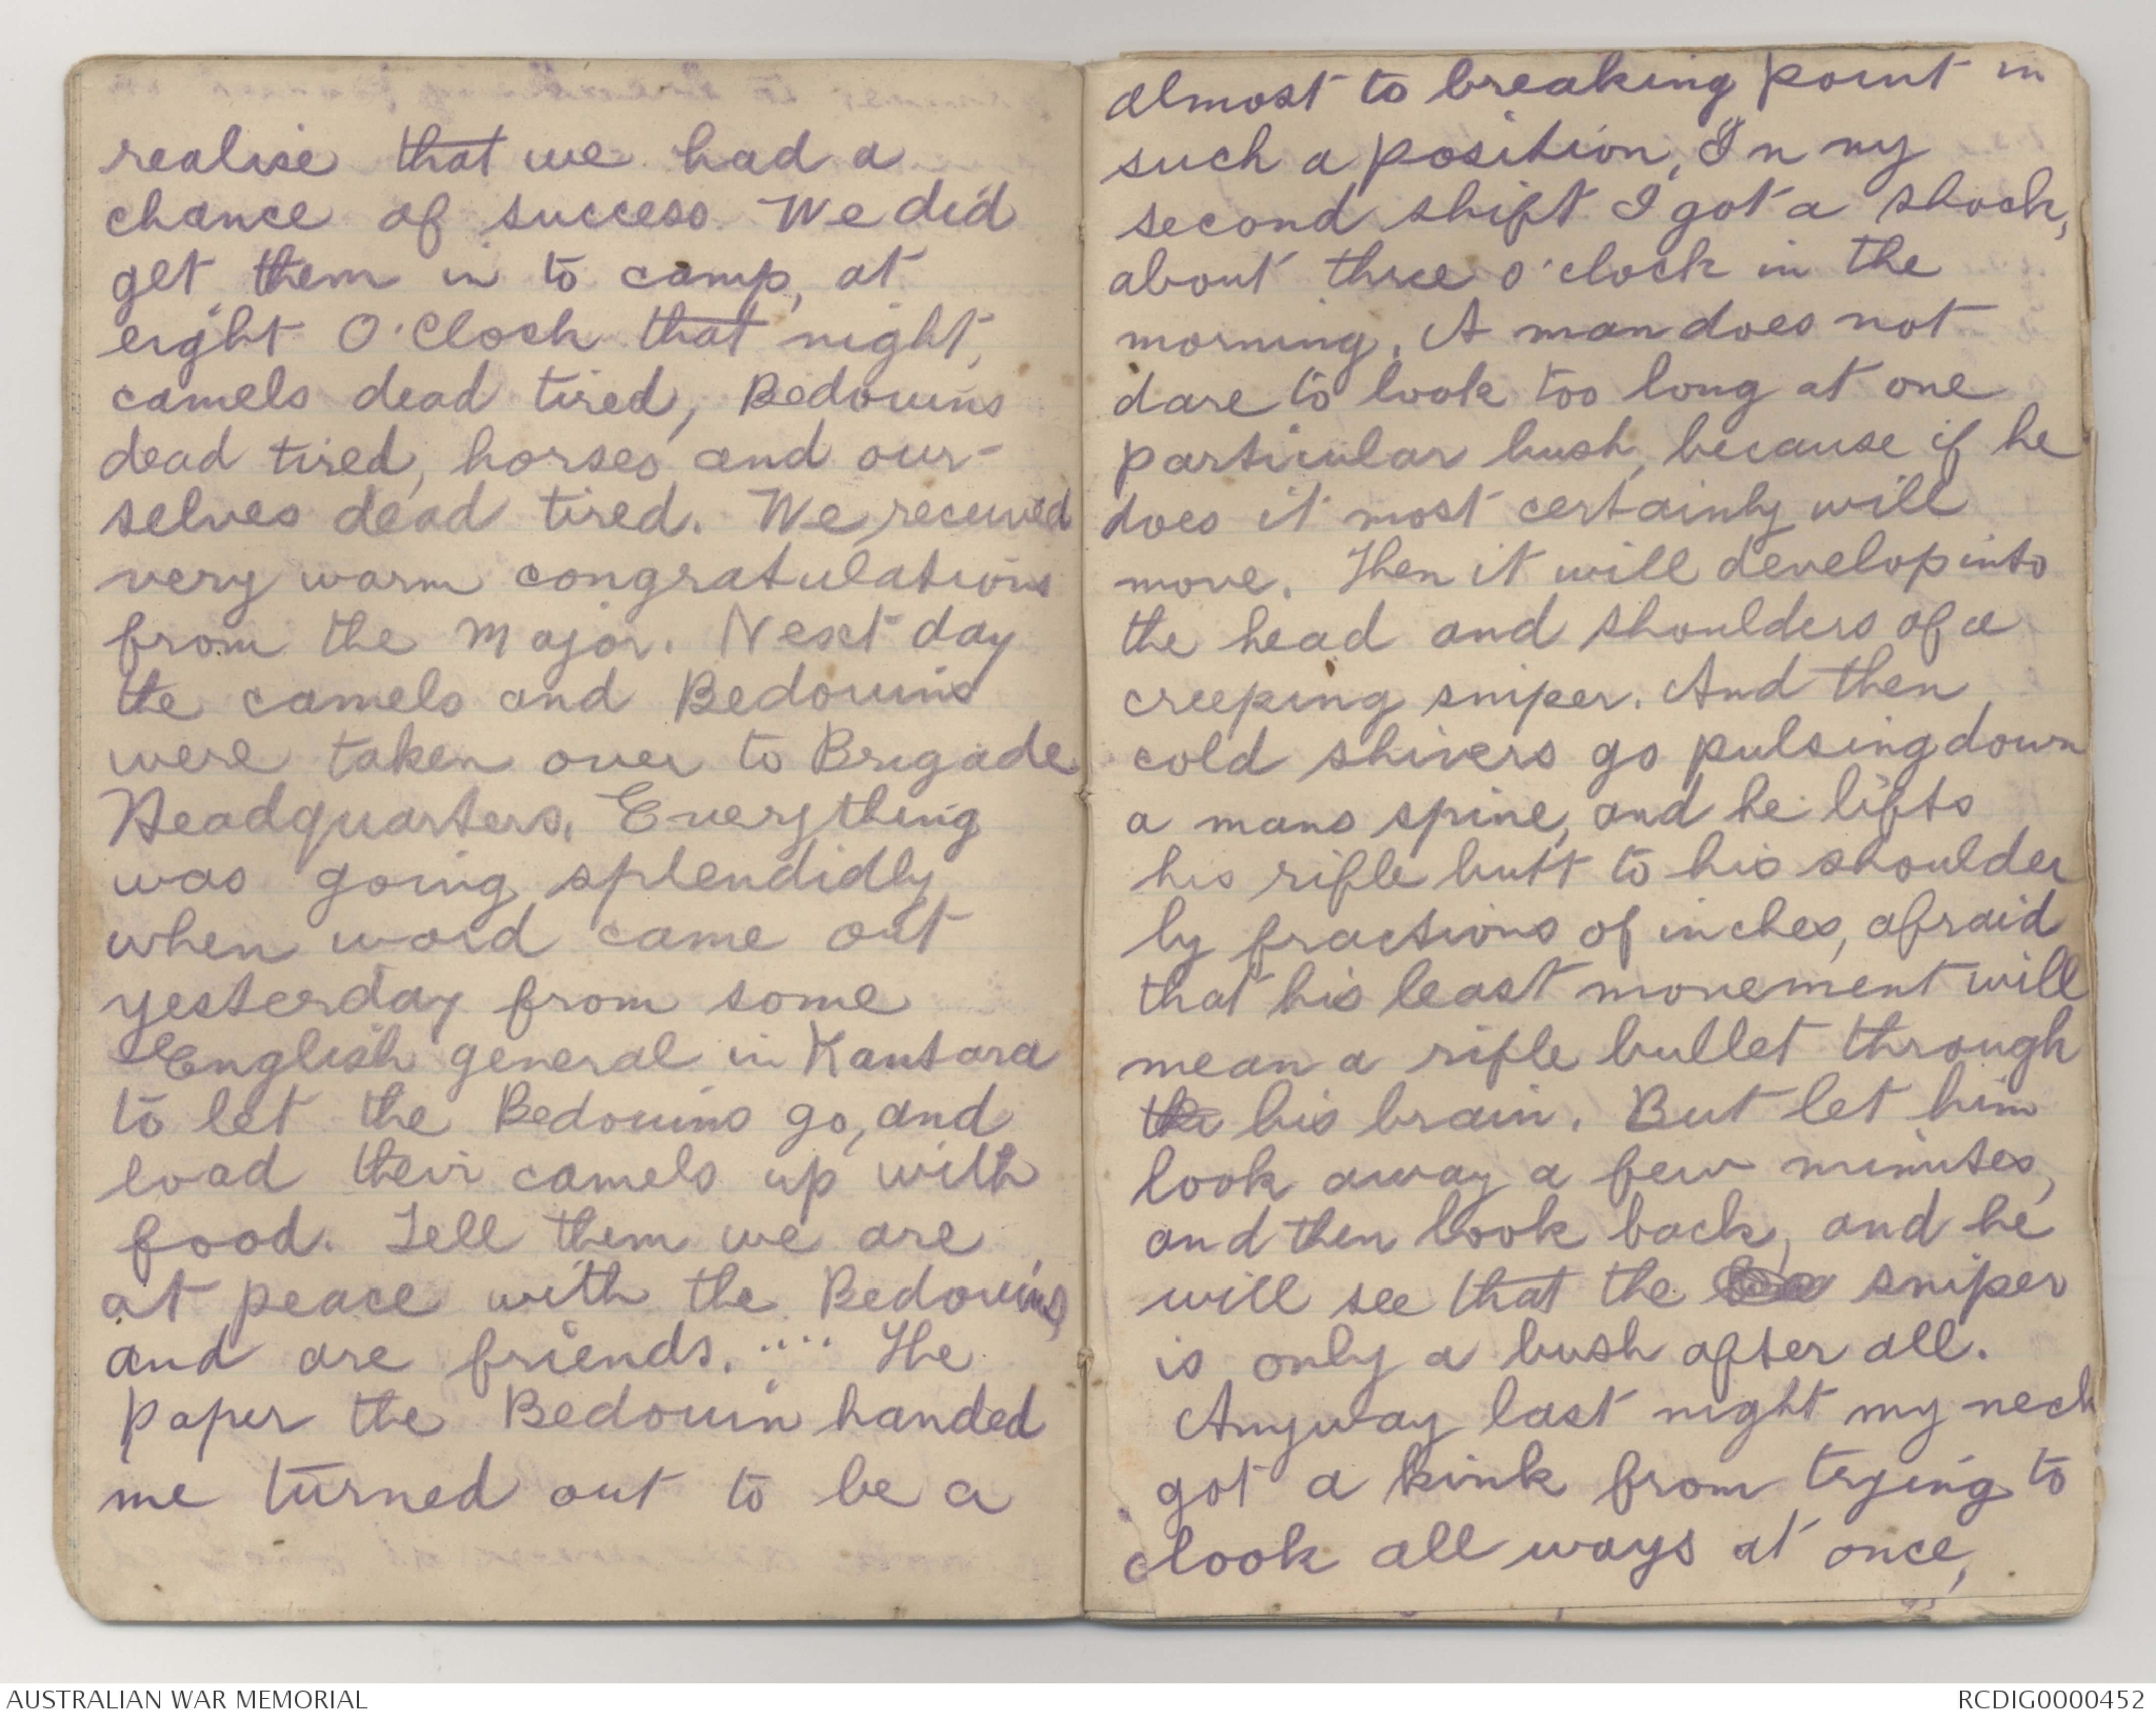 realise that we had a
chance of success. We did
get them in to camp, at
eight O'Clock that night,
camels dead tired, Bedouins
dead tired, horses and our-
selves dead tired. We received
very warm congratulations
from the Major. Next day
the camels and Bedouins
were taken over to Brigade
Headquarters. Everything
was going splendidly
when word came out
yesterday from some
English general in Kantara
to let the Bedouins go, and
load their camels up with
food. Tell them we are
at peace with the Bedouins
and are friends. .... The
paper the Bedouin handed
me turned out to be a
almost to breaking point in
such a position, In my
second shift I got a shock,
about three o'clock in the
morning. A man does not
dare to look too long at one
particular bush, because if he
does it most certainly will
move. Then it will develop into
the head and shoulders of a
creeping sniper. And then
cold shivers go pulsing down
a mans spine, and he lifts
his rifle butt to his shoulder
by fractions of inches, afraid
that his least movement will
mean a rifle bullet through
the his brain. But let him
look away a few minutes,
and then look back, and he
will see that the sniper
is only a bush after all.
Anyway last night my neck
got a kink from trying to
look all ways at once,
AUSTRALIAN WAR MEMORIAL
RCDIG0000452